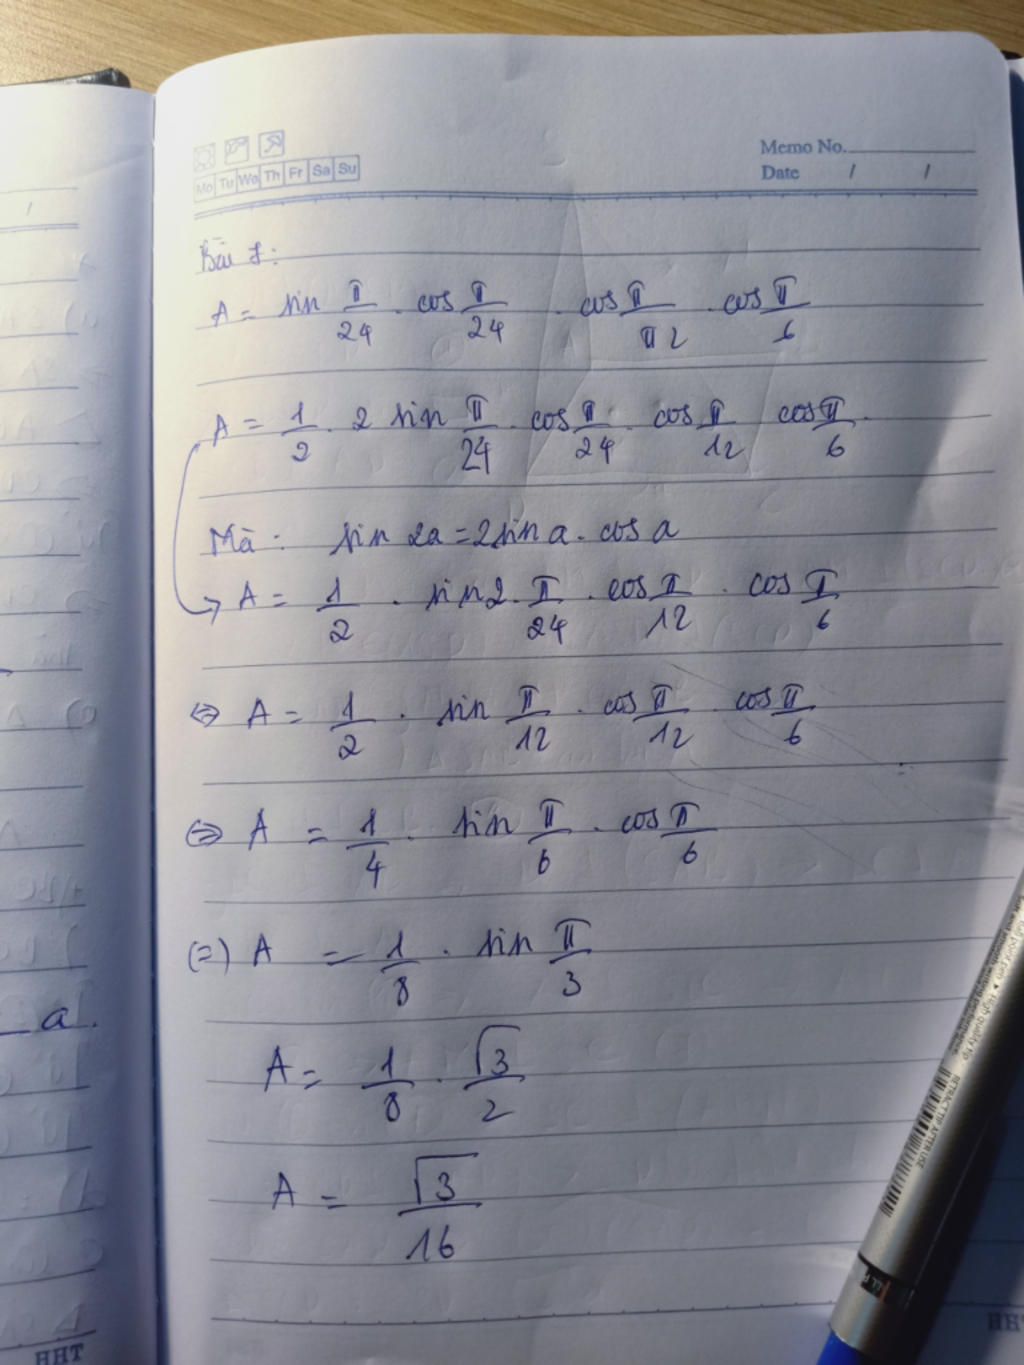 Memo No.
Mo Tu We Th Fr Sa Su
Date / /
Bài 1:
A = sin π/24 . cos π/24 . cos π/π2 . cos π/6
A = 1/2 . 2 sin π/24 . cos π/24 . cos π/12 cos π/6 .
Mà : sin 2a = 2 sin a . cos a
→ A = 1/2 . sin 2 . π/24 . cos π/12 . cos π/6
⇔ A = 1/2 . sin π/12 . cos π/12 . cos π/6
⇔ A = 1/4 . sin π/6 . cos π/6
(=) A = 1/8 . sin π/3
A = 1/8 . √3/2
A = √3/16
a .
HHT
RETRACT TIP AFTER USE